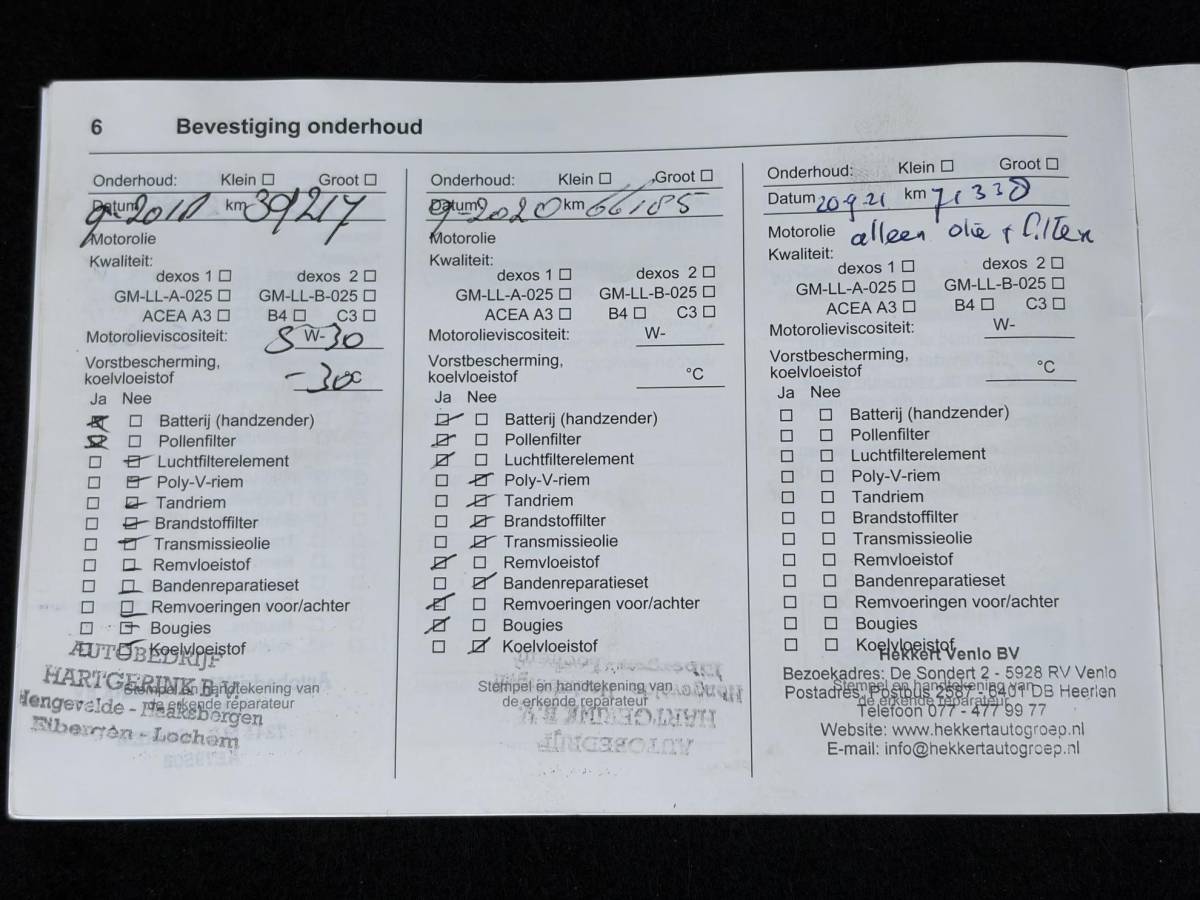 6 Bevestiging onderhoud
Onderhoud: Klein ☐ Groot ☐
Datum km 39217
Motorolie
Kwaliteit:
dexos 1 ☐ dexos 2 ☐
GM-LL-A-025 ☐ GM-LL-B-025 ☐
ACEA A3 ☐ B4 ☐ C3 ☐
Motorolieviscositeit: 5 W- 30
Vorstbescherming,
koelvloeistof -30 °C
Ja Nee
Batterij (handzender)
Pollenfilter
Luchtfilterelement
Poly-V-riem
Tandriem
Brandstoffilter
Transmissieolie
Remvloeistof
Bandenreparatieset
Remvoeringen voor/achter
Bougies
Koelvloeistof
Stempel en handtekening van
de erkende reparateur
AUTOBEDRIJF
HARTGERINK B.V.
Hengevelde - Haaksbergen
Eibergen - Lochem
Onderhoud: Klein ☐ Groot ☐
Datum 9-2020 km 66185
Motorolie
Kwaliteit:
dexos 1 ☐ dexos 2 ☐
GM-LL-A-025 ☐ GM-LL-B-025 ☐
ACEA A3 ☐ B4 ☐ C3 ☐
Motorolieviscositeit: W-
Vorstbescherming,
koelvloeistof °C
Ja Nee
Batterij (handzender)
Pollenfilter
Luchtfilterelement
Poly-V-riem
Tandriem
Brandstoffilter
Transmissieolie
Remvloeistof
Bandenreparatieset
Remvoeringen voor/achter
Bougies
Koelvloeistof
Stempel en handtekening van
de erkende reparateur
HARTGERINK B.V.
AUTOBEDRIJF
Onderhoud: Klein ☐ Groot ☐
Datum 20-9-21 km 71330
Motorolie alleen olie + filter
Kwaliteit:
dexos 1 ☐ dexos 2 ☐
GM-LL-A-025 ☐ GM-LL-B-025 ☐
ACEA A3 ☐ B4 ☐ C3 ☐
Motorolieviscositeit: W-
Vorstbescherming,
koelvloeistof °C
Ja Nee
Batterij (handzender)
Pollenfilter
Luchtfilterelement
Poly-V-riem
Tandriem
Brandstoffilter
Transmissieolie
Remvloeistof
Bandenreparatieset
Remvoeringen voor/achter
Bougies
Koelvloeistof
Hekkert Venlo BV
Bezoekadres: De Sondert 2 - 5928 RV Venlo
Stempel en handtekening van
Postadres, Postbus 2587 - 6401 DB Heerlen
de erkende reparateur
Telefoon 077 - 477 99 77
Website: www.hekkertautogroep.nl
E-mail: info@hekkertautogroep.nl